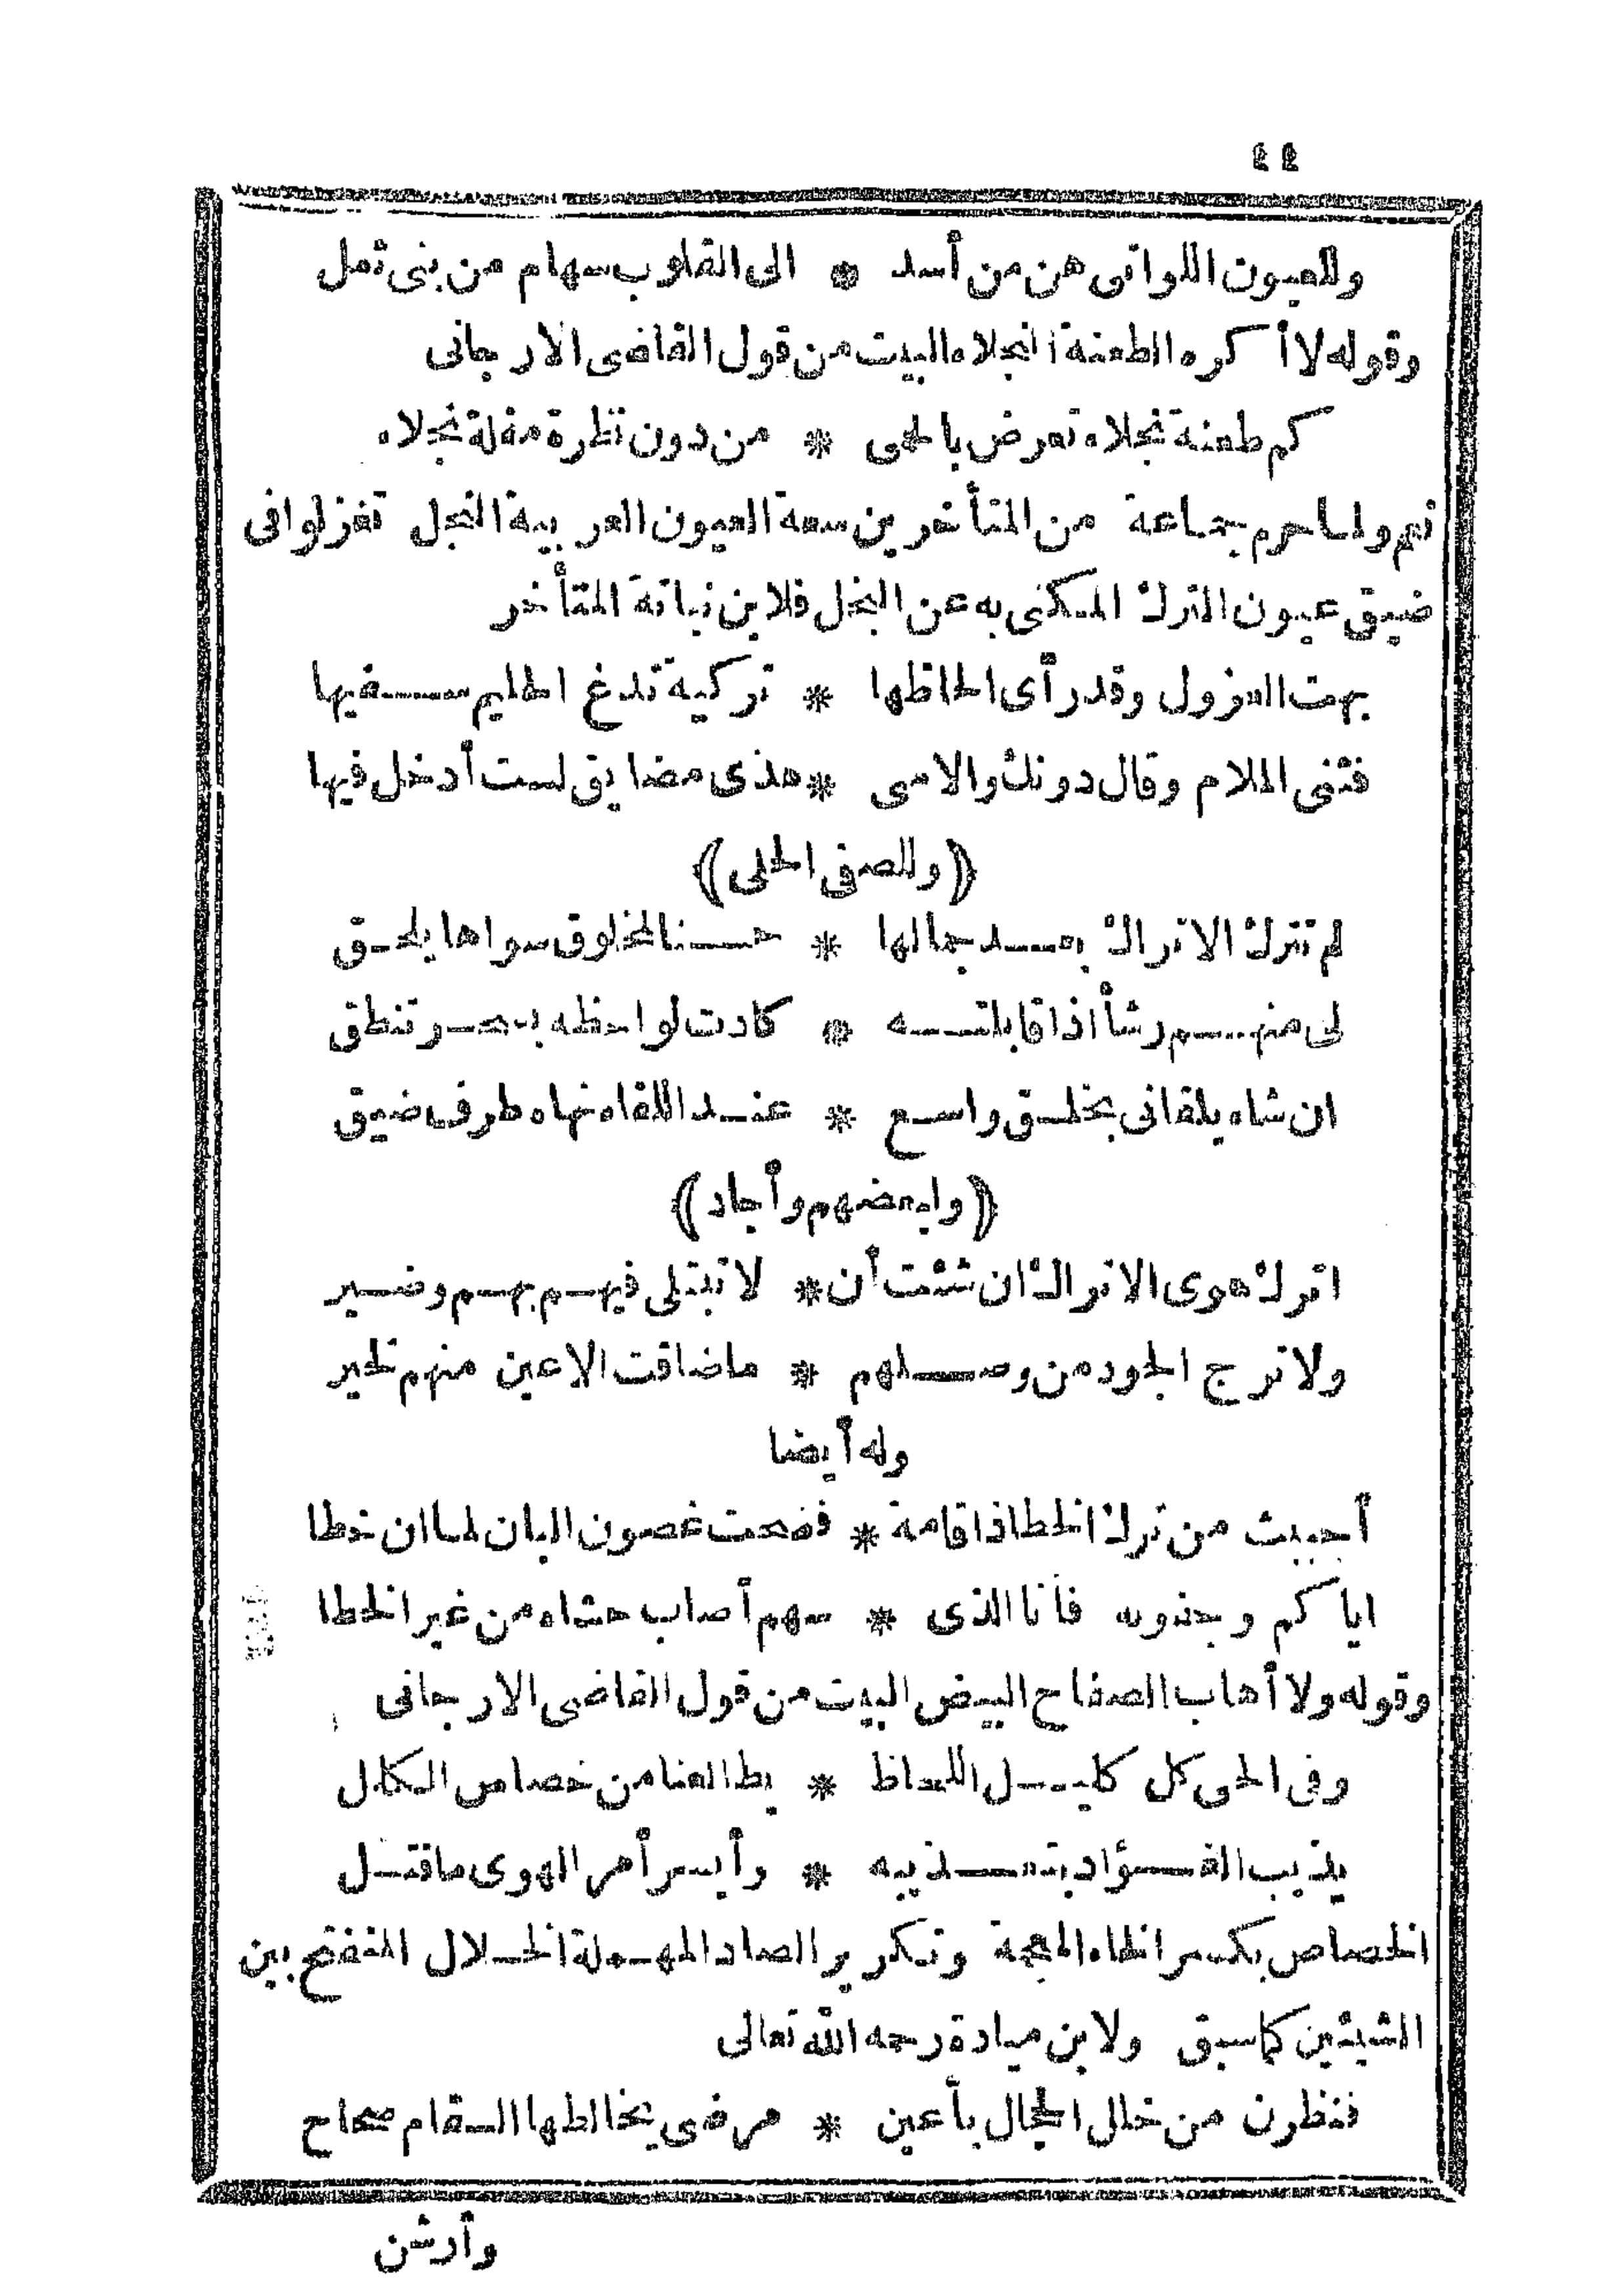 ٤٤
وللعيون اللواتى هن من أسد * الى القلوب سهام من بنى ثعل
وقوله لا أكره الطعنة النجلاء البيت من قول القاضى الارجانى
كم طعنة نجلاء تعرض بالحى * من دون نظرة مقلة نجلاء
نعم ولما حرم جماعة من المتأخرين سعة العيون العربية النجل تغزلوا فى
ضيق عيون الترك المكنى به عن البخل فلابن نباتة المتأخر
بهت العزول وقد رأى الحاظها * تركية تدع الحليم سفيها
فثنى الملام وقال دونك والاسى * هذى مضايق لست أدخل فيها
(وللصفى الحلى)
لم تترك الاتراك بعد جمالها * حسنا لمخلوق سواها يلحق
لى منهم رشأ اذا قابلته * كادت لواحظه بسحر تنطق
ان شاء يلقانى بخلق واسع * عند اللقاء نهاه طرف ضيق
(ولبعضهم وأجاد)
اترك هوى الاتراك ان شئت أن * لا تبتلى فيهم بهم وضير
ولا ترج الجود من وصلهم * ماضاقت الاعين منهم لخير
وله أيضا
أحببت من ترك الخطا ذا قامة * فضحت غصون البان لما ان خطا
اياكم وجفونه فأنا الذى * سهم أصاب حشاه من غير الخطا
وقوله ولا أهاب الصفاح البيض البيت من قول القاضى الارجانى
وفى الحى كل كليل اللحاظ * يطالعنا من خصاص الكلل
يذيب الفؤاد بتعذيبه * وأيسر أمر الهوى ما قتل
الخصاص بكسر الخاء المعجمة وتكرير الصاد المهملة الخلال المنفتح بين
الشيئين كما سبق ولابن ميادة رحمه الله تعالى
فنظرن من خلل الحجال بأعين * مرضى يخالطها السقام صحاح
وأرشن